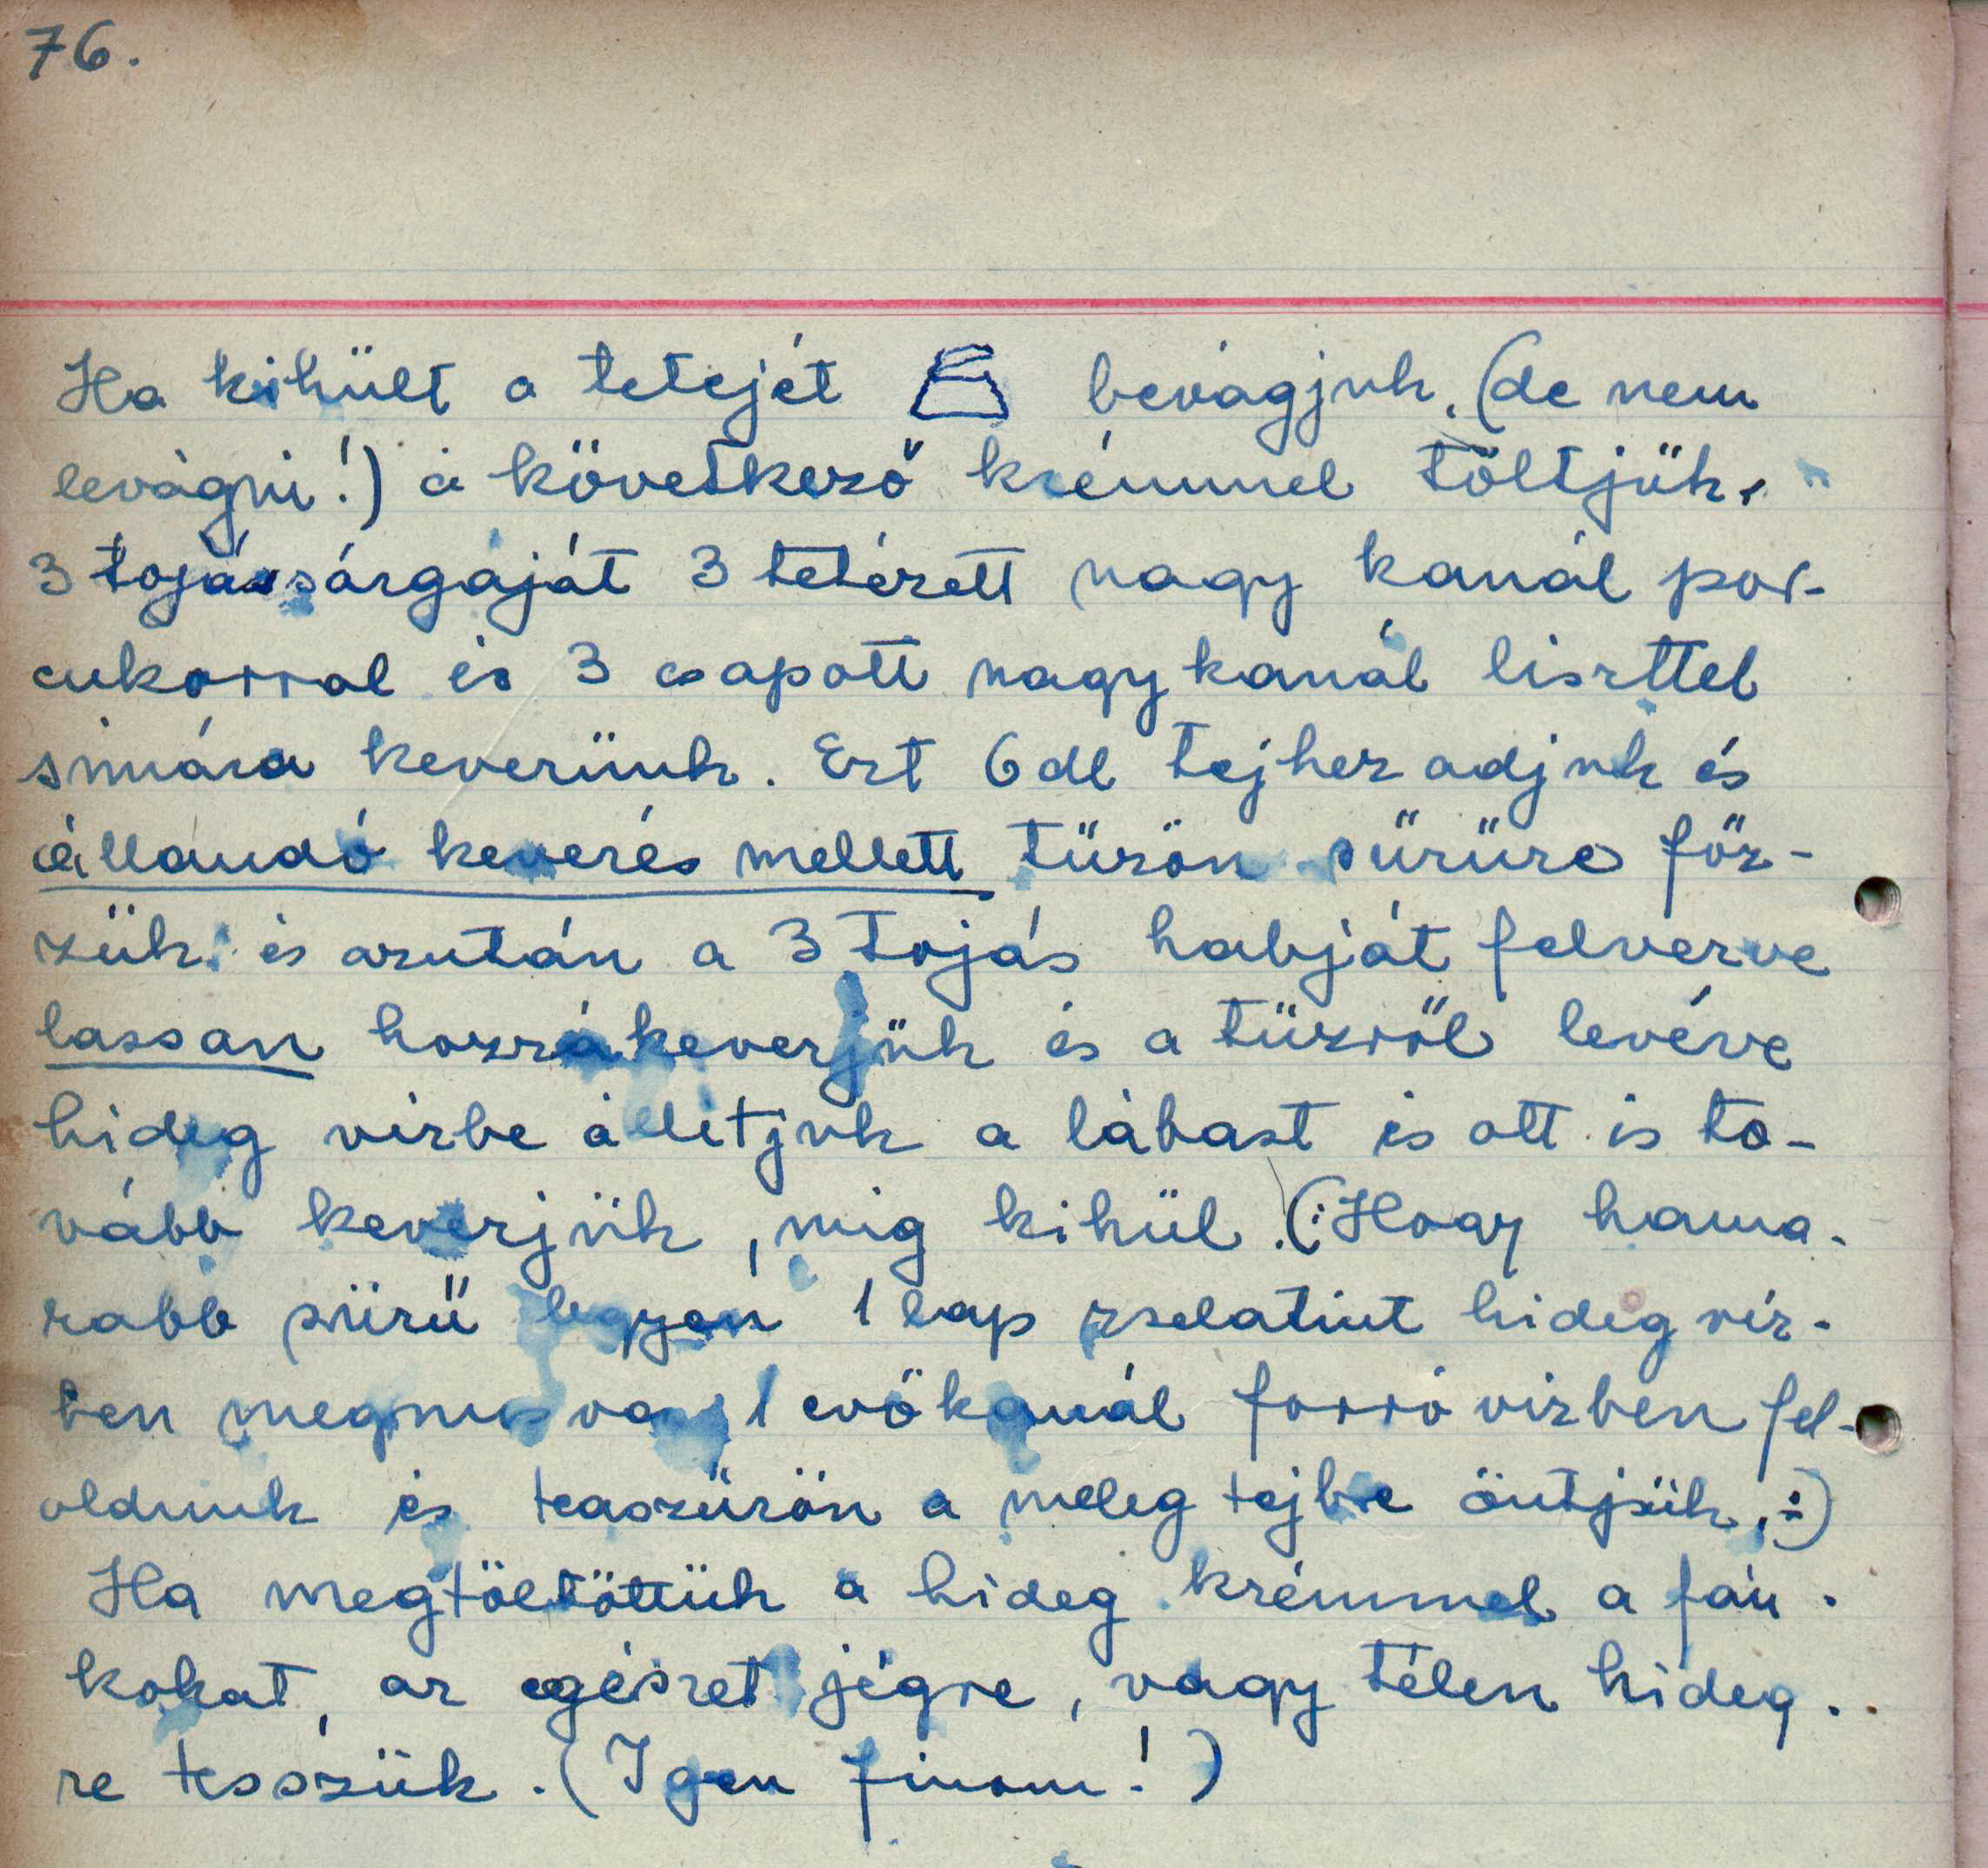 76.
Ha kihült a tetejét bevágjuk, (de nem
levágni!) a következő krémmel töltjük.
3 tojássárgáját 3 tetézett nagy kanál por-
cukorral és 3 csapott nagy kanál liszttel
simára keverünk. Ezt 6 dl tejhez adjuk és
állandó keverés mellett tűzön sűrűre főz-
zük és azután a 3 tojás habját felverve
lassan hozzákeverjük és a tűzről levéve
hideg vizbe állitjuk a lábast és ott is to-
vább keverjük, mig kihül. (: Hogy hama-
rabb sürü legyen 1 lap zselatint hideg viz-
ben megmosva, 1 evőkanál forró vizben fel-
oldunk és teaszürön a meleg tejbe öntjük. :)
Ha megtöltöttük a hideg krémmel a fán-
kokat, az egészet jégre, vagy télen hideg-
re tesszük. (Igen finom!)